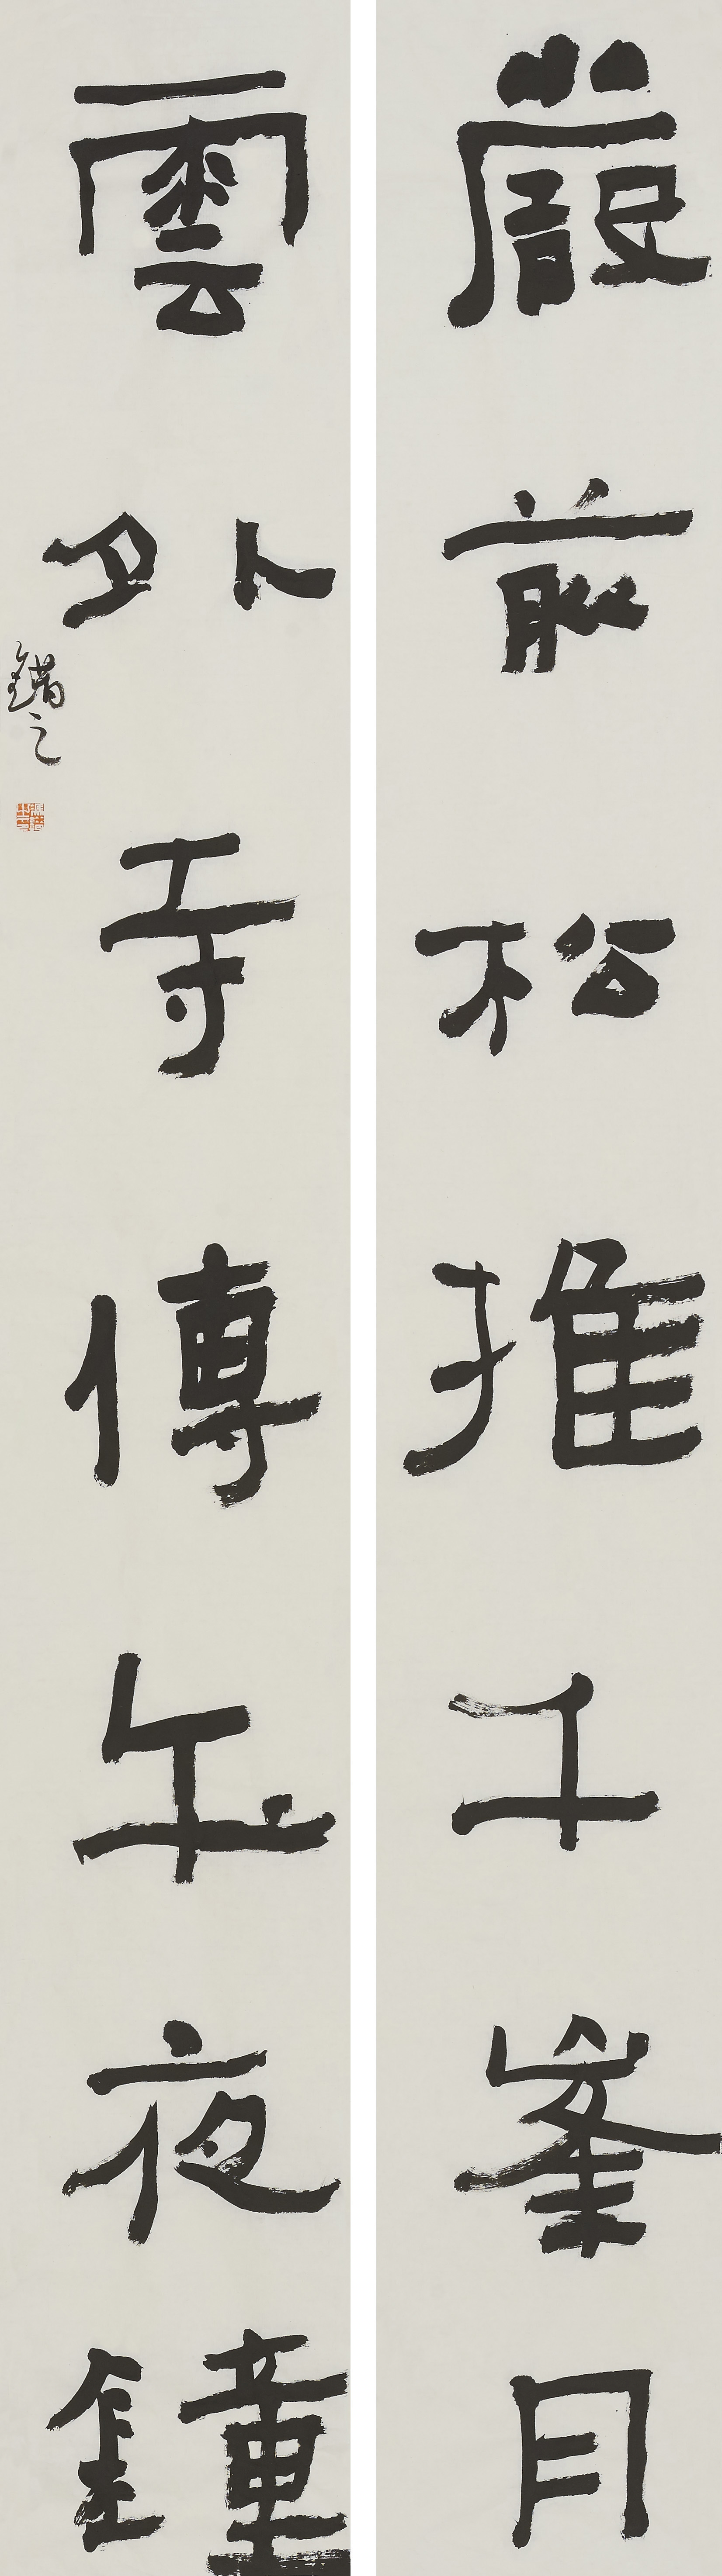 嚴前松推千峯月
雲外寺傳午夜鐘
錯之